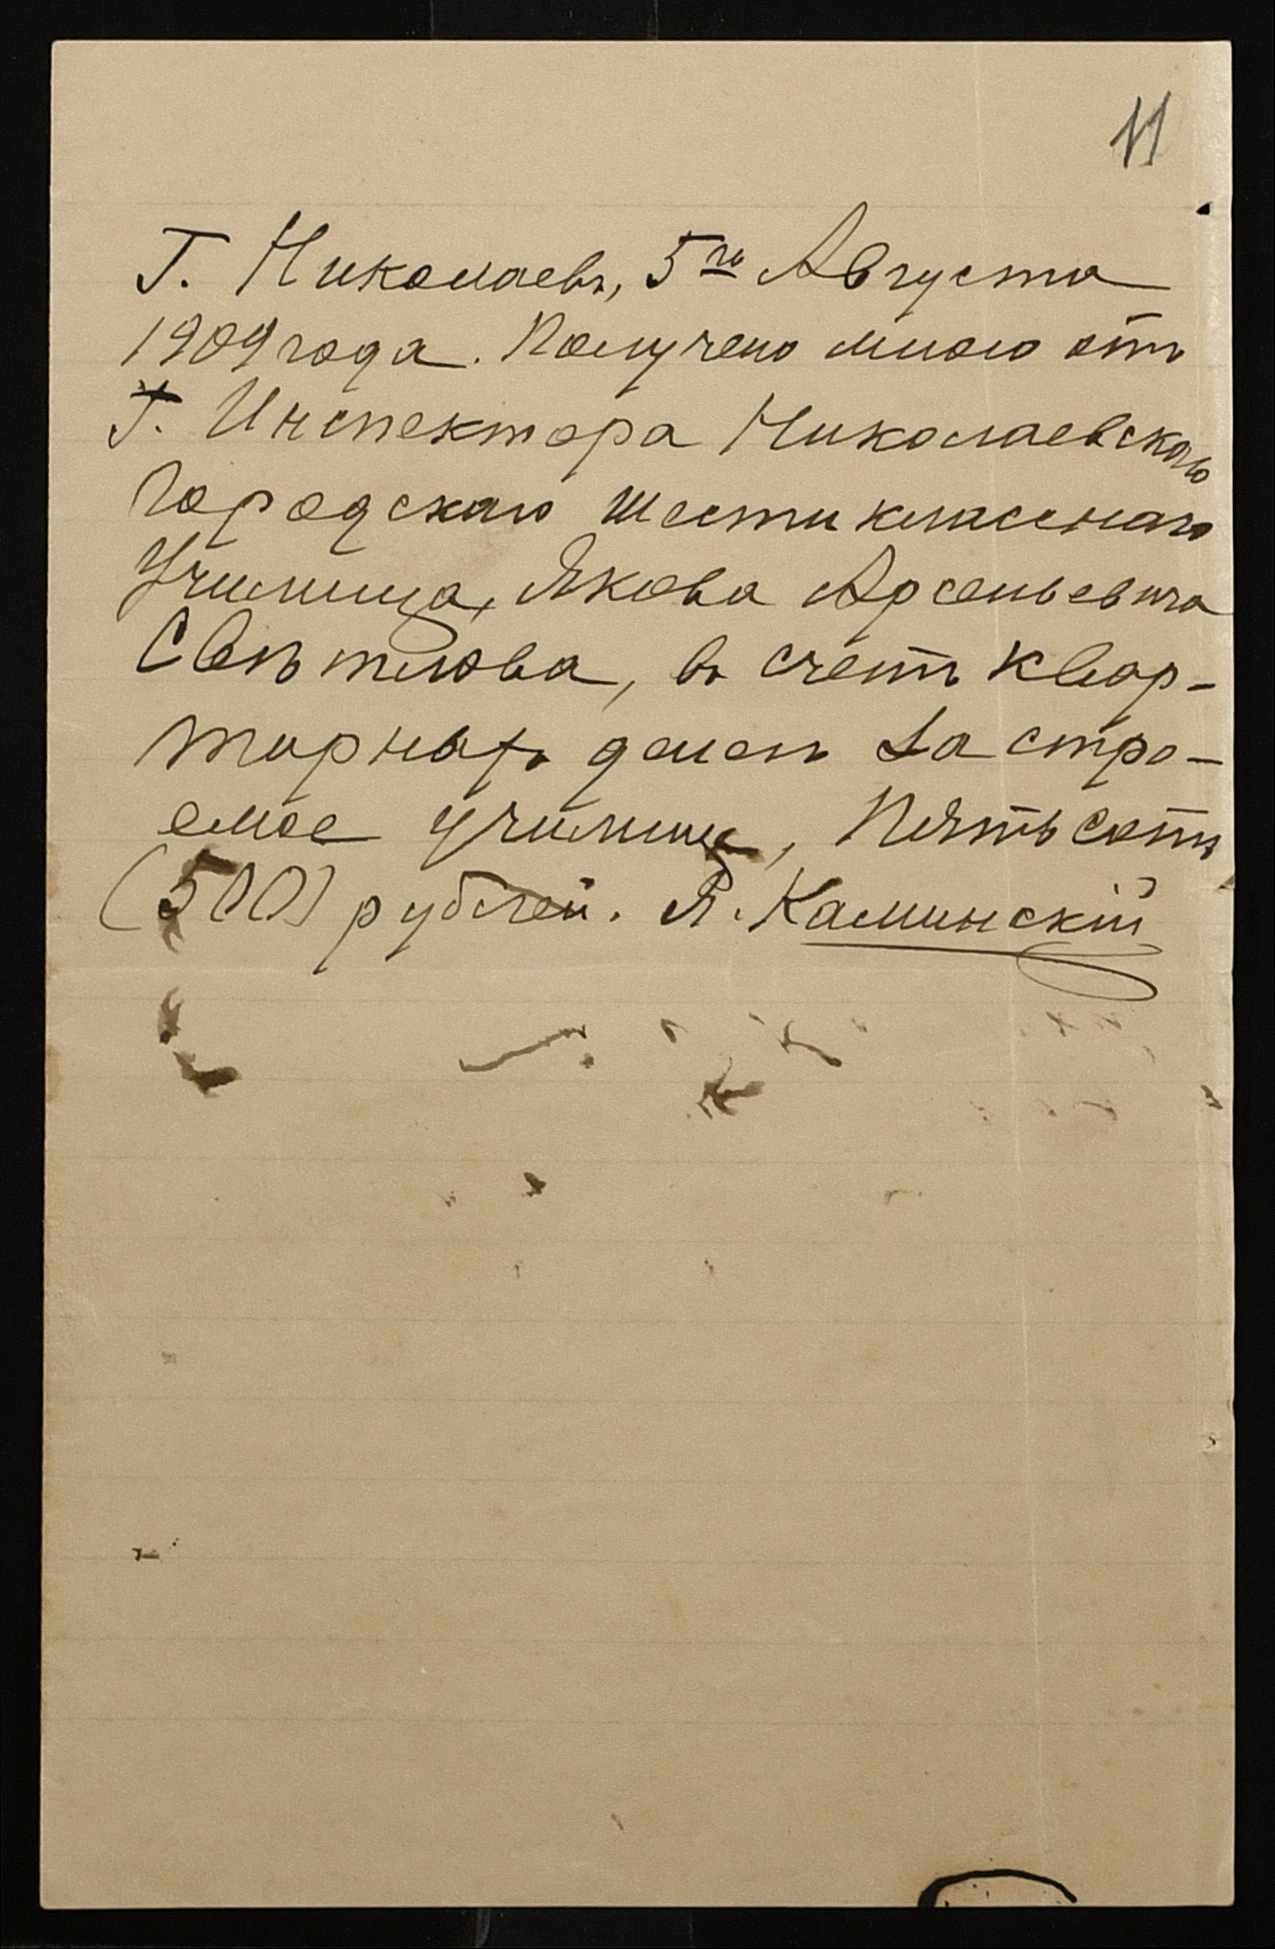 11
Г. Николаевъ, 5го Августа
1909 года. Получено мною отъ
Г. Инспектора Николаевскаго
Городскаго шестикласснаго
Училища, Якова Арсеньевича
Свѣтлова, въ счетъ квар-
тирныхъ денегъ за строе-
емое училище, Пятьсотъ
(500) рублей. Я. Каминскій